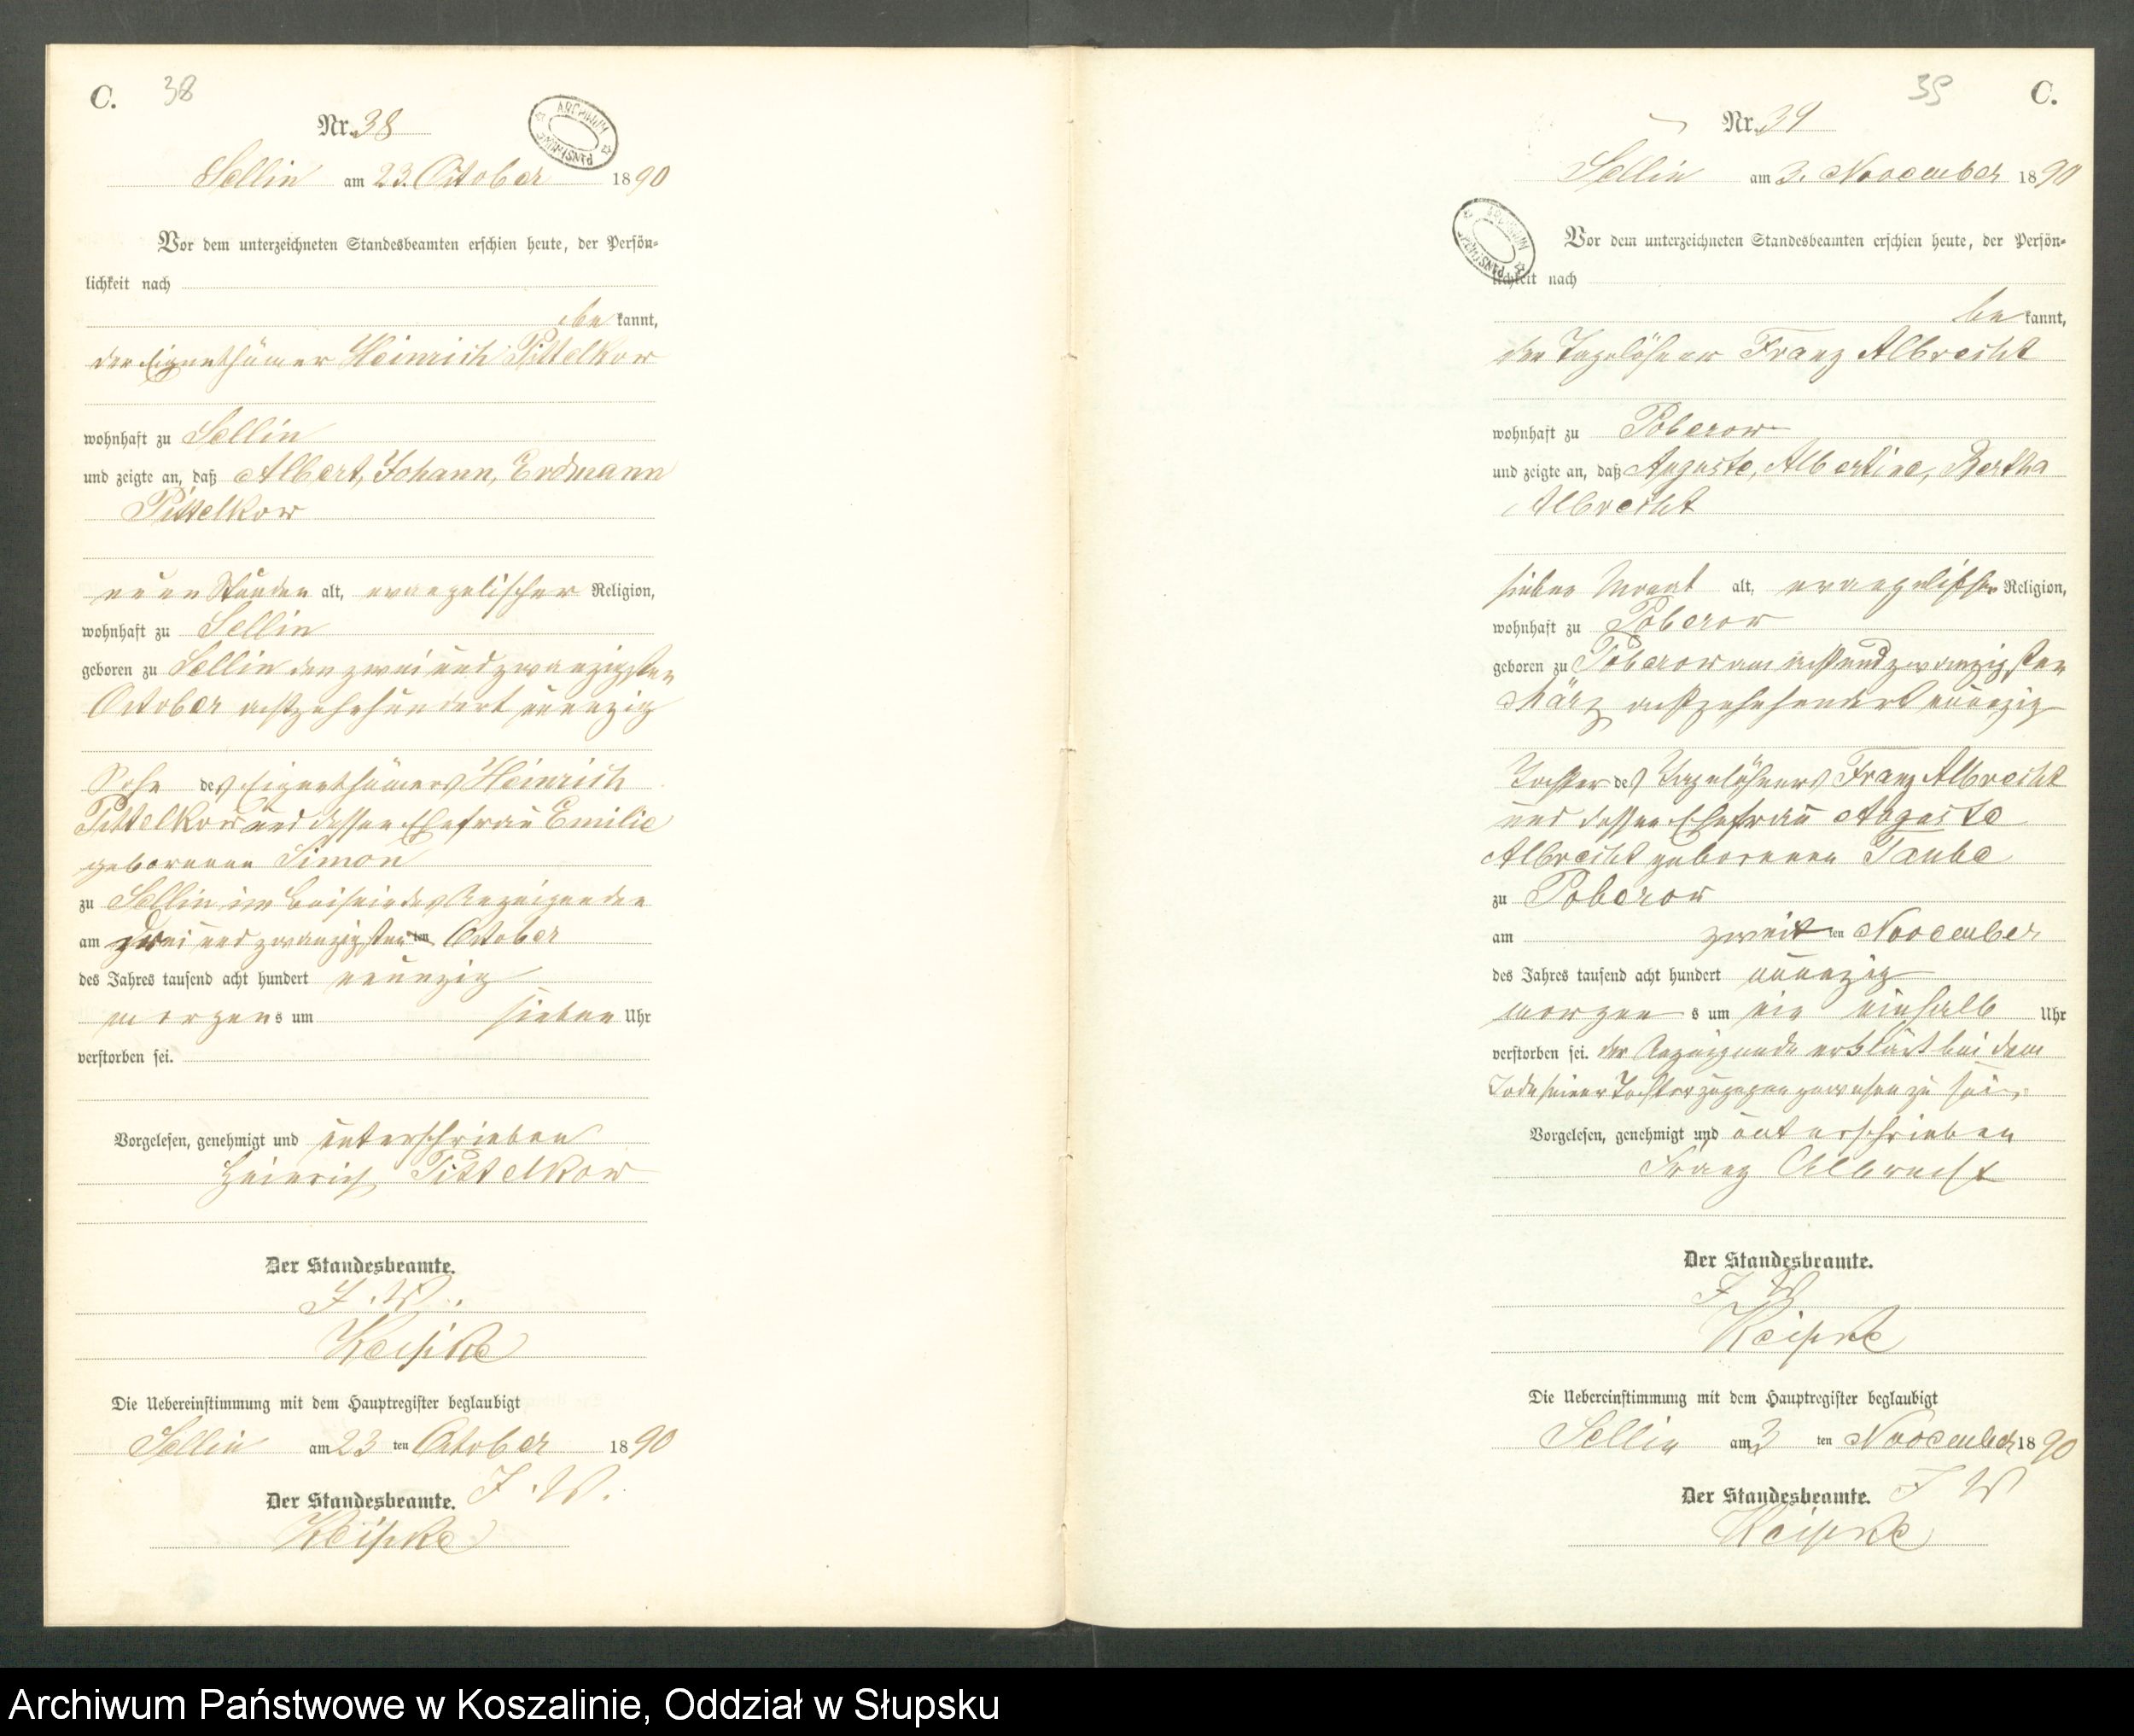 C. 38
Nr. 38
ARCHIWUM PAŃSTWOWE
Sellin am 23. October 1890
Vor dem unterzeichneten Standesbeamten erschien heute, der Persön-
lichkeit nach
be kannt,
der Eigenthümer Heinrich Pittelkow
wohnhaft zu Sellin
und zeigte an, daß Albert, Johann, Erdmann
Pittelkow
neun Stunden alt, evangelischer Religion,
wohnhaft zu Sellin
geboren zu Sellin den zwei und zwanzigsten
October achtzehnhundert neunzig
Sohn des Eigenthümers Heinrich
Pittelkow und dessen Ehefrau Emilie
geborenen Simon
zu Sellin im Beisein des Anzeigenden
am drei und zwanzigsten ten October
des Jahres tausend acht hundert neunzig
morgens um sieben Uhr
verstorben sei.
Vorgelesen, genehmigt und unterschrieben
Heinrich Pittelkow
Der Standesbeamte.
J. V.
Keipke
Die Uebereinstimmung mit dem Hauptregister beglaubigt
Sellin am 23 ten October 1890
Der Standesbeamte. J. V.
Keipke
39 C.
Nr. 39
Sellin am 3. November 1890
ARCHIWUM PAŃSTWOWE
Vor dem unterzeichneten Standesbeamten erschien heute, der Persön-
lichkeit nach
be kannt,
der Tagelöhner Franz Albrecht
wohnhaft zu Poberow
und zeigte an, daß Auguste, Albertine, Bertha
Albrecht
sieben Monat alt, evangelischer Religion,
wohnhaft zu Poberow
geboren zu Poberow am achtundzwanzigsten
März achtzehnhundert neunzig
Tochter des Tagelöhners Franz Albrecht
und dessen Ehefrau Auguste
Albrecht geborenen Taube
zu Poberow
am zweit ten November
des Jahres tausend acht hundert neunzig
morgen s um ein einhalb Uhr
verstorben sei. der Anzeigende erklärt bei dem
Tode seiner Tochter zugegen gewesen zu sein.
Vorgelesen, genehmigt und unterschrieben
Franz Albrecht
Der Standesbeamte.
J V
Keipke
Die Uebereinstimmung mit dem Hauptregister beglaubigt
Sellin am 3 ten November 1890
Der Standesbeamte. J V
Keipke
Archiwum Państwowe w Koszalinie, Oddział w Słupsku